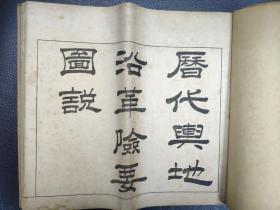 曆代輿地
沿革險要
圖說